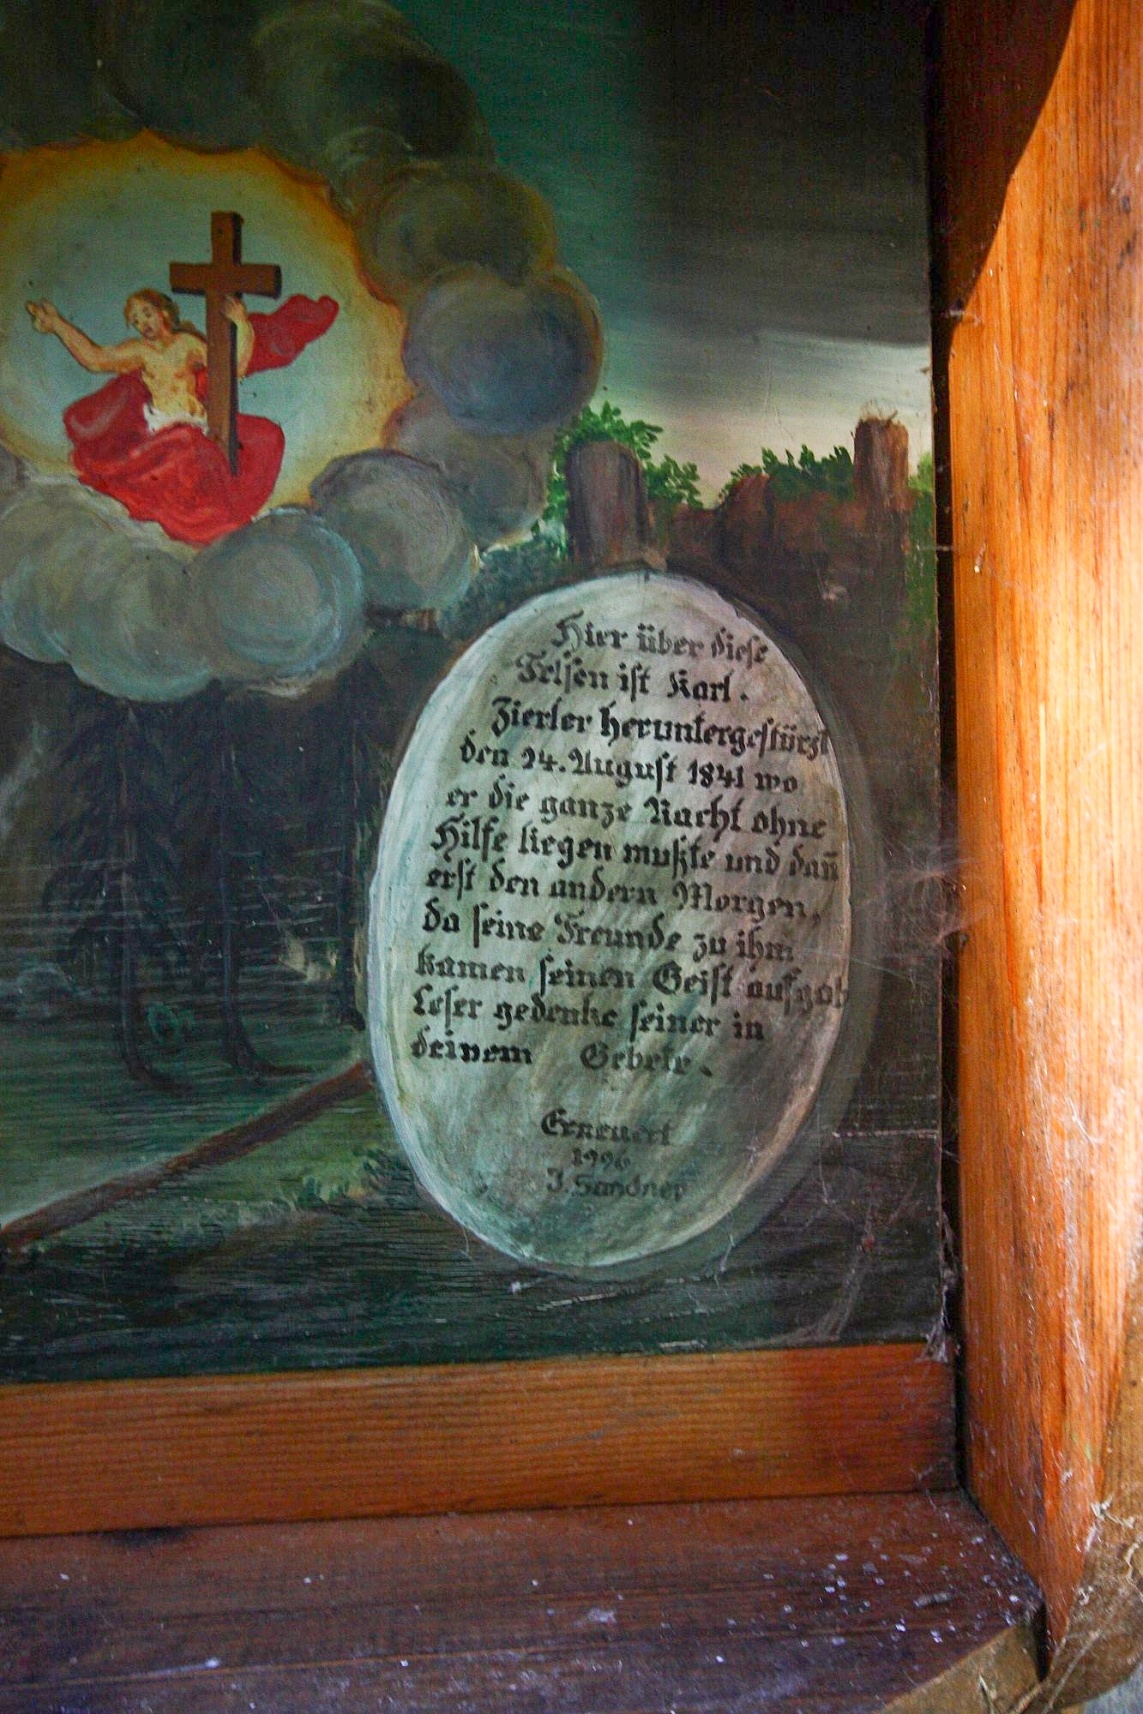 Hier über diese
Felsen ist Karl.
Zierler heruntergestürzt
den 24. August 1841 wo
er die ganze Nacht ohne
Hilfe liegen mußte und dan̄
erst den andern Morgen,
da seine Freunde zu ihm
kamen seinen Geist aufgab
Leser gedenke seiner in
deinem Gebete.
Erneuert
1996
J. Sandner